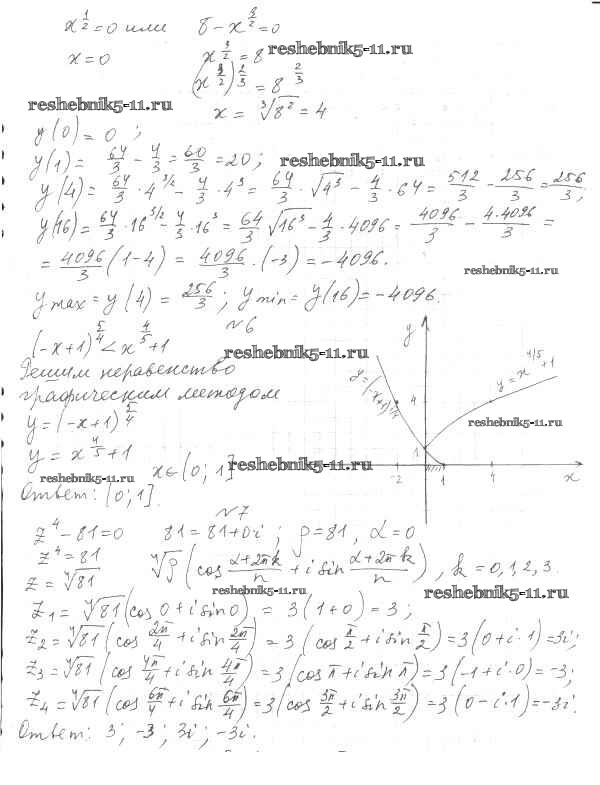 x^{1/2} = 0 или 8 - x^{3/2} = 0
x = 0 x^{3/2} = 8
reshebnik5-11.ru
(x^{3/2})^{2/3} = 8^{2/3}
x = ∛8² = 4
reshebnik5-11.ru
y(0) = 0 ;
y(1) = 64/3 - 4/3 = 60/3 = 20 ;
reshebnik5-11.ru
y(4) = 64/3 · 4^{3/2} - 4/3 · 4³ = 64/3 · √4³ - 4/3 · 64 = 512/3 - 256/3 = 256/3 ;
y(16) = 64/3 · 16^{3/2} - 4/3 · 16³ = 64/3 √16³ - 4/3 · 4096 = 4096/3 - 4·4096/3 =
= 4096/3 (1-4) = 4096/3 · (-3) = -4096.
reshebnik5-11.ru
y max = y(4) = 256/3 ; y min = y(16) = -4096.
№6
(-x+1)^{5/4} < x^{4/5} + 1
reshebnik5-11.ru
Решим неравенство
графическим методом
y = (-x+1)^{5/4}
y = x^{4/5} + 1
x ∈ (0; 1]
reshebnik5-11.ru
reshebnik5-11.ru
Ответ: (0; 1].
y
y = (-x+1)^{5/4}
y = x^{4/5} + 1
4
reshebnik5-11.ru
1
-2 1 4 x
№7
z⁴ - 81 = 0 81 = 81 + 0i ; ρ = 81, α = 0
z⁴ = 81
z = ⁴√81 ⁿ√ρ (cos (α+2πk)/n + i sin (α+2πk)/n), k = 0, 1, 2, 3.
reshebnik5-11.ru
reshebnik5-11.ru
z₁ = ⁴√81 (cos 0 + i sin 0) = 3(1+0) = 3 ;
z₂ = ⁴√81 (cos 2π/4 + i sin 2π/4) = 3 (cos π/2 + i sin π/2) = 3(0 + i·1) = 3i ;
z₃ = ⁴√81 (cos 4π/4 + i sin 4π/4) = 3 (cos π + i sin π) = 3(-1 + i·0) = -3 ;
z₄ = ⁴√81 (cos 6π/4 + i sin 6π/4) = 3 (cos 3π/2 + i sin 3π/2) = 3(0 - i·1) = -3i.
Ответ: 3 ; -3 ; 3i ; -3i.